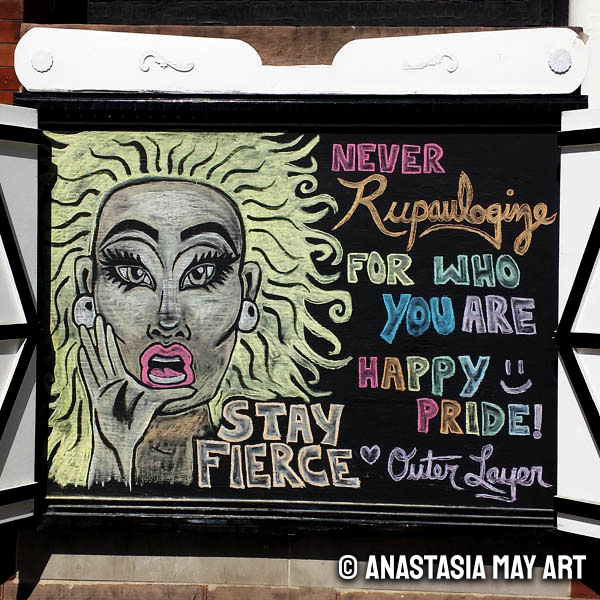 NEVER
Rupaulogize
FOR WHO
YOU ARE
HAPPY
PRIDE!
STAY
FIERCE
Outer Layer
© ANASTASIA MAY ART